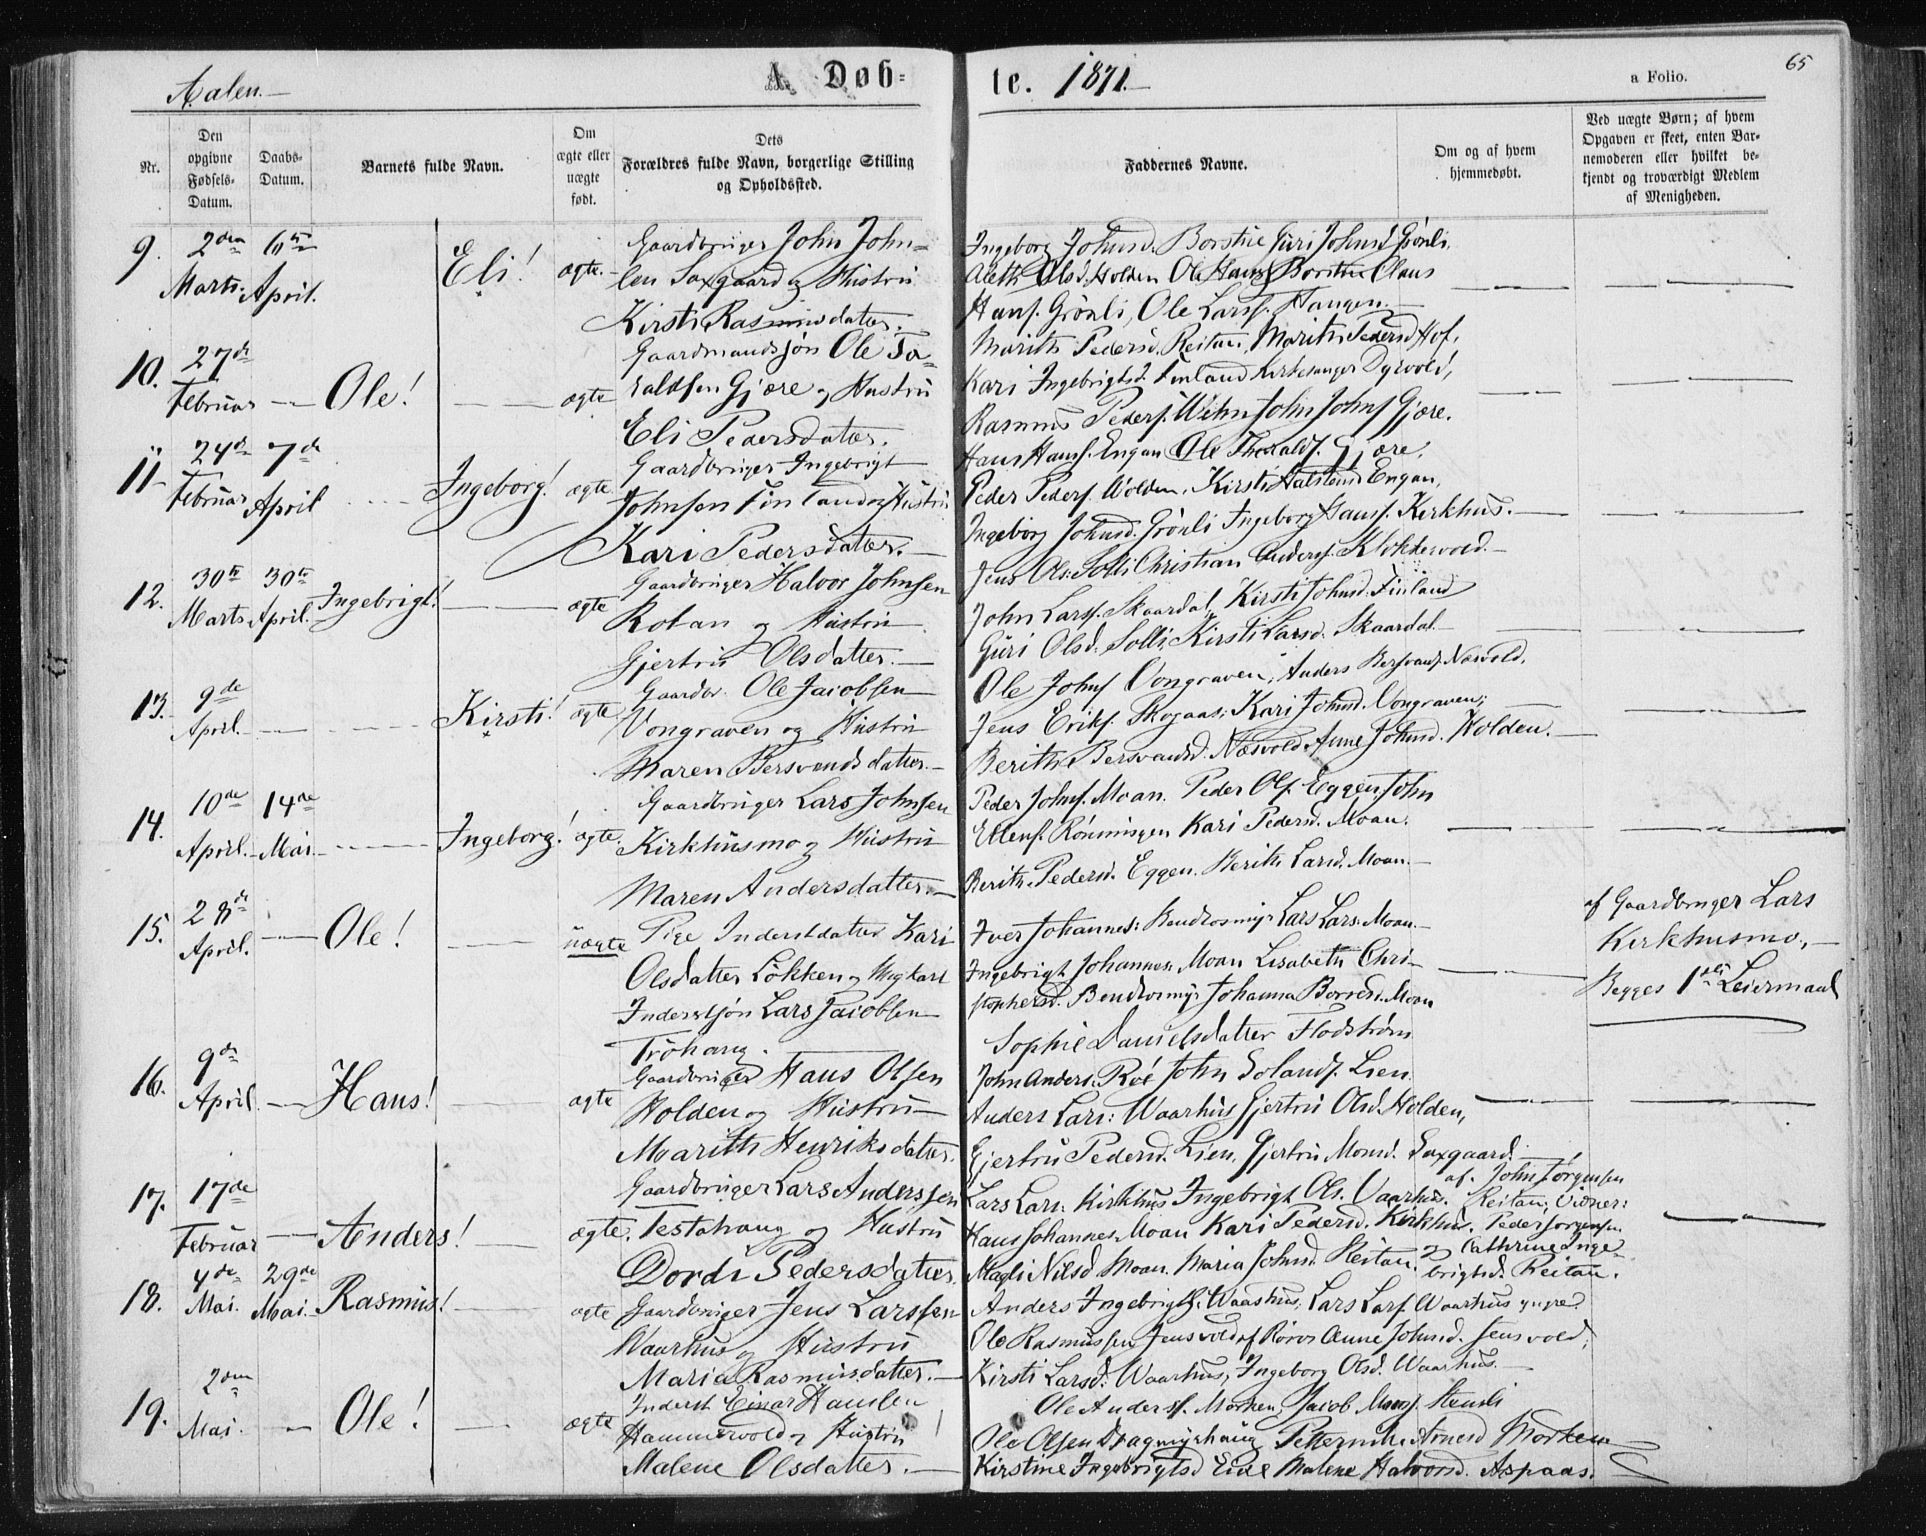 Aalen.
A. Døb-
te. 1871.
a Folio.
65
Nr.
Den opgivne Fødsels-Datum.
Daabs-Datum.
Barnets fulde Navn.
Om ægte eller uægte født.
Dets Forældres fulde Navn, borgerlige Stilling og Opholdssted.
Faddernes Navne.
Om og af hvem hjemmedøbt.
Ved uægte Børn; af hvem Opgaven er skeet, enten Barnemoderen eller hvilket bekjendt og troværdigt Medlem af Menigheden.
9. 2den Marts. 6te April. Eli! ægte.
Gaardbruger John John-
sen Saxgaard og Hustru
Kirsti Rasmusdatter.
Ingeborg Johnsd. Borstue Guri Johnsd. Grønli.
Aleth Olsd. Holden Ole Hans. Claus
Hans. Grønli, Ole Larss. Haugen.
10. 27de Februar Ole! ægte
Gaardmandssøn Ole To-
raldsen Gjære og Hustru
Eli Pedersdatter.
Marith Pedersd. Reitan, Marith Pedersd. Hof,
Kari Ingebrigtsd. Finland Kirkesanger Dyrvold,
Rasmus Peders. John Johns. Gjære.
11. 24de Februar 7de April Ingeborg! ægte
Gaardbruger Ingebrigt
Johnsen Finland og Hustru
Kari Pedersdatter.
Hans Hans. Engan Ole Thoralds. Gjære,
Peder Peders. Wolden, Kirsti Engan,
Ingeborg Johnsd. Grønli Ingeborg Hans. Kirkhus.
12. 30te Marts 30te April. Ingebrigt! ægte
Gaardbruger Halvor Johnsen
Rotan og Hustru
Gjertru Olsdatter.
Jens Ols. Solli Christian Anders. Klokkervold.
John Larss. Skaardal, Kirsti Johnsd. Finland
Guri Olsd. Solli, Kirsti Larsd. Skaardal
13. 9de April. Kirsti! ægte
Gaardbr. Ole Jacobsen
Vongraven og Hustru
Maren Bersvendsdatter.
Ole Johns. Vongraven, Anders Bersvends. Næsvold,
Jens Eriks. Skogaas, Kari Johnsd. Vongraven,
Berith Bersvendsd. Næsvold Anne Johnsd. Holden.
14. 10de April. 14de Mai. Ingeborg! ægte.
Gaardbruger Lars Johnsen
Kirkhusmo og Hustru
Maren Andersdatter.
Peder Johns. Moan. Peder Ols. Eggen, John
Ellens. Rønningen Kari Pedersd. Moan.
Berith Pedersd. Eggen. Berith Larsd. Moan.
15. 28de April. Ole! uægte
Pige Inderstdatter Kari
Olsdatter Løkken og Ungkarl
Inderstsøn Lars Jacobsen
Trøhaug.
Iver Johannes: Lars Lars: Moan.
Ingebrigt Johannes: Moan Lisabeth Chri-
stophersd. Johanna Moan
Sophie Danielsdatter Flodstrøm
af Gaardbruger Lars
Kirkhusmo,
Begges 1ste Leiermaal
16. 9de April. Hans! ægte
Gaardbruger Hans Olsen
Holden og Hustru
Marith Henriksdatter.
John Anders. Røe John Lien
Anders Lars: Waarhus Gjertru Olsd. Holden,
Gjertru Pedersd. Lien, Gjertru Monsd. Saxgaard.
17. 17de Februar Anders! ægte.
Gaardbruger Lars Anderssen
Testahaug og Hustru
Dordi Pedersdatter.
Lars Lars: Kirkhus Ingebrigt Ols. Vaarhus.
Hans Johannes. Moan Kari Pedersd. Kirkhus.
Magli Nilsd Moan. Maria Johnsd. Reitan.
af John Jørgensen
Reitan, Vidner:
Peder Jørgensen.
og Cathrine Inge-
brigtsd. Reitan.
18. 4de Mai. 29de Mai. Rasmus! ægte
Gaardbruger Jens Larssen
Waarhus og Hustru
Maria Rasmusdatter.
Anders Ingebrigts. Waarhus, Lars Lars. Waarhus yngre
Ole Rasmussen Jensvold af Røros Anne Johnsd. Jensvold,
Kirsti Larsd. Waarhus, Ingeborg Olsd. Waarhus.
19. 2den Mai. Ole! ægte
Inderst Einar Hansen
Hammervold og Hustru
Malene Olsdatter.
Ole Anderss. Morken, Jacob Stensli
Ole Olsen Dragmyrhaug Arnesd Morken
Kirstine Ingebrigtsd Eide Malene Halvorsd. Aspaas.